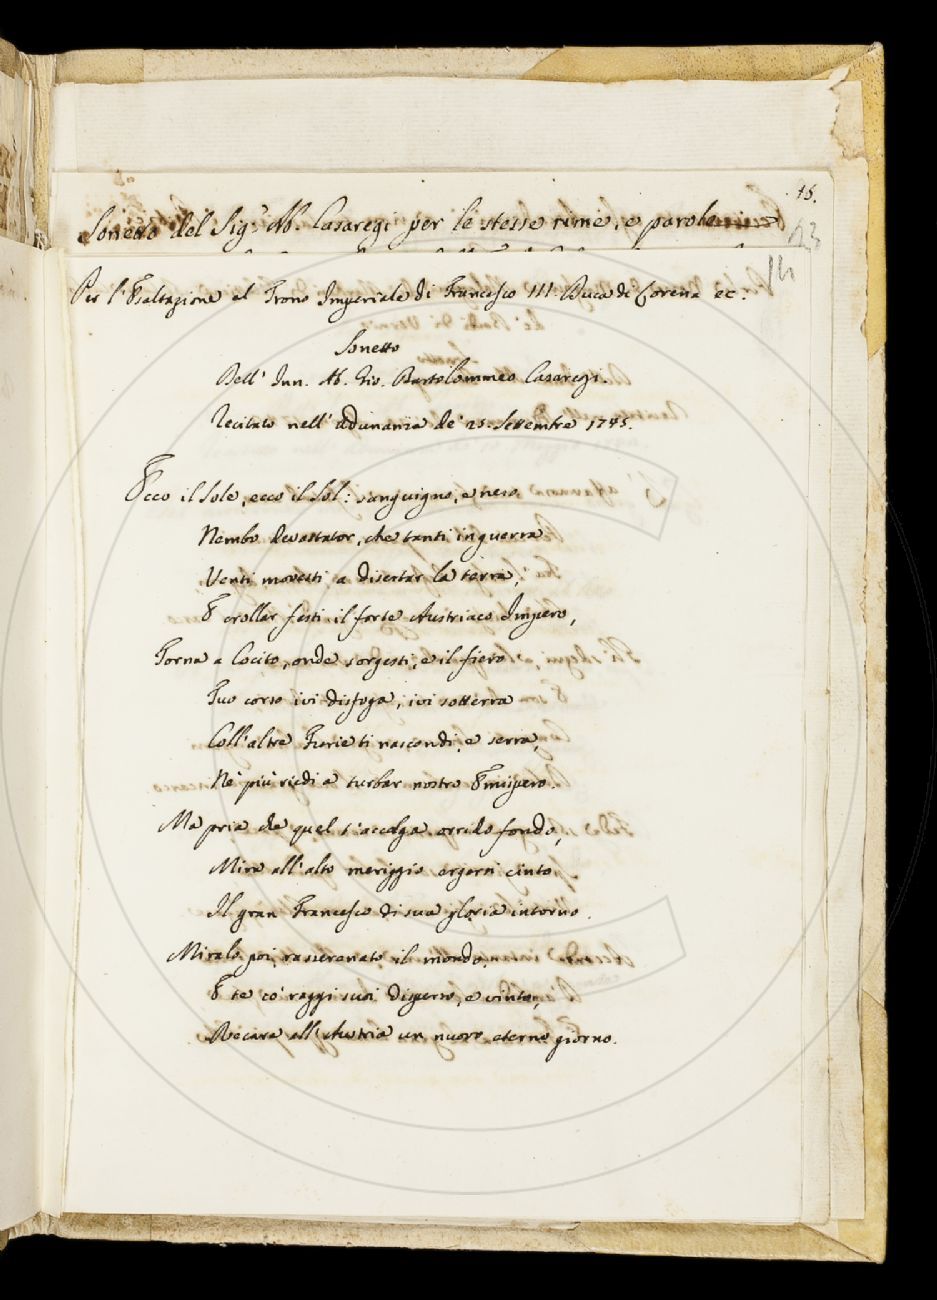 15.
Sonetto del Sig.r Ab. Casaregi per le stesse rime, e parole
13
14
Per l'Esaltazione al Trono Imperiale di Francesco III. Duca di Lorena ec.
Sonetto
Dell' Inn. Ab. Gio. Bartolommeo Casaregi.
Recitato nell' adunanza de' 25. Settembre 1745.
Ecco il Sole, ecco il Sol: sanguigno, e nero
Nembo devastator, che tanti in guerra
Venti movesti a disertar la terra,
E crollar festi il forte Austriaco Impero,
Torna a Cocito, onde sorgesti, e il fiero
Tuo corso ivi disfoga, ivi sotterra
Coll' altre Furie ti nascondi, e serra,
Nè più riedi a turbar nostro Emispero.
Ma pria che quel t'accolga orrido fondo,
Mira all' alto meriggio ergersi cinto
Il gran Francesco di sua gloria intorno.
Miralo poi, rasserenato il mondo,
E te co' raggi suoi disperso, e vinto,
Recare all' Austria un nuovo eterno giorno.